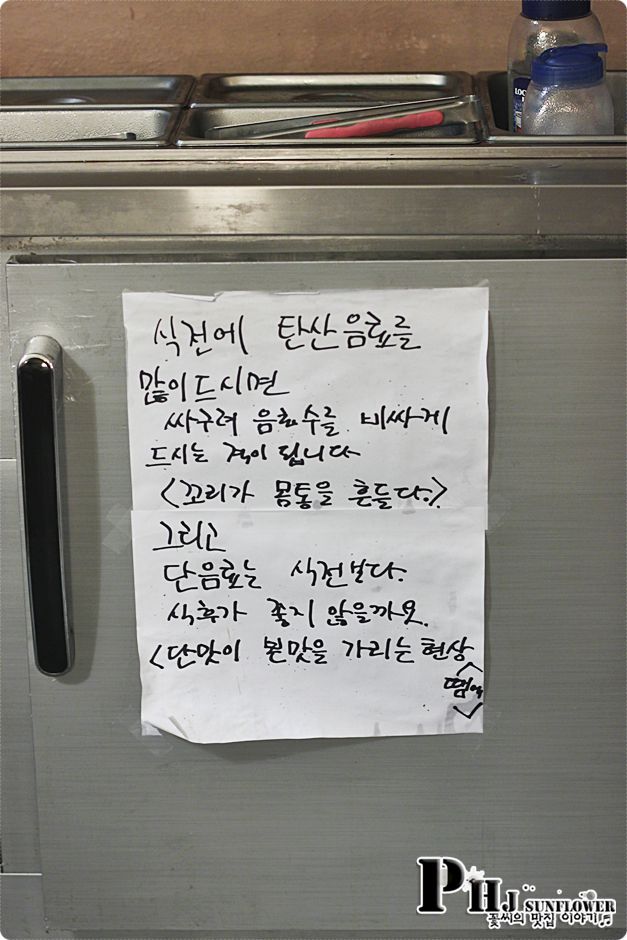 식전에 탄산음료를
많이드시면
싸구려 음료수를 비싸게
드시는 격이 됩니다
<꼬리가 몸통을 흔들다.>
그리고
단음료는 식전보다.
식후가 좋지 않을까요.
<단맛이 본맛을 가리는 현상
땜에>
PHJ SUNFLOWER
꽃씨의 맛집 이야기♬